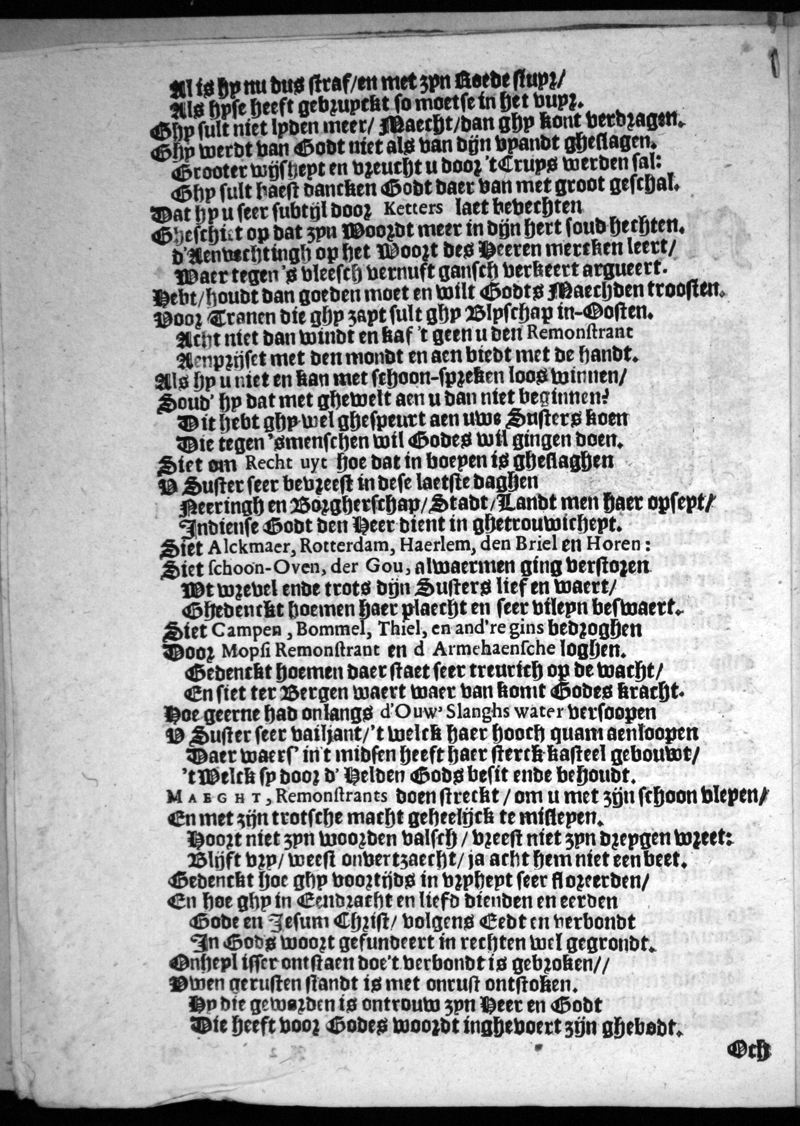 Al is hy nu dus straf/en met zyn Roede stuyr/
Als hyse heeft gebruyckt so moetse in het vuyr.
Ghy sult niet lyden meer/ Maecht/dan ghy kont verdragen.
Ghy werdt van Godt niet als van dijn vyandt gheslagen.
Grooter wijsheyt en vreucht u door 'tCruys werden sal:
Ghy sult haest dancken Godt daer van met groot geschal.
Dat hy u seer subtijl door Ketters laet bevechten
Gheschiet op dat zyn Woordt meer in dijn hert soud hechten.
d'Aenvechtingh op het Woort des Heeren mercken leert/
Waer tegen 's vleesch vernuft gansch verkeert argueert.
Hebt/houdt dan goeden moet en wilt Godts Maechden troosten.
Voor Tranen die ghy zayt sult ghy Blyschap in-Oosten.
Acht niet dan windt en kaf 't geen u den Remonstrant
Aenprijset met den mondt en aen biedt met de handt.
Als hy u niet en kan met schoon-spreken loos winnen/
Soud' hy dat met ghewelt aen u dan niet beginnen?
Dit hebt ghy wel ghespeurt aen uwe Susters koen
Die tegen 'smenschen wil Godes wil gingen doen.
Siet om Recht uyt hoe dat in boeyen is gheslaghen
V Suster seer bevreest in dese laetste daghen
Neeringh en Borgherschap/Stadt/Landt men haer opseyt/
Indiense Godt den Heer dient in ghetrouwicheyt.
Siet Alckmaer, Rotterdam, Haerlem, den Briel en Horen:
Siet schoon-Oven, der Gou, alwaermen ging verstoren
Wt wrevel ende trots dijn Susters lief en waert/
Ghedenckt hoemen haer plaecht en seer vileyn beswaert.
Siet Campen, Bommel, Thiel, en and're gins bedroghen
Door Mopsi Remonstrant en d Armehaensche loghen.
Gedenckt hoemen daer staet seer treurich op de wacht/
En siet ter Bergen waert waer van komt Godes kracht.
Hoe geerne had onlangs d'Ouw' Slanghs water versoopen
V Suster seer vailjant/'t welck haer hooch quam aenloopen
Daer waers' in't midsen heeft haer sterck kasteel gebouwt/
't Welck sy door d' Helden Gods besit ende behoudt.
MAEGHT, Remonstrants doen streckt/om u met zijn schoon vleyen/
En met zijn trotsche macht geheelijck te misleyen.
Hoort niet zyn woorden valsch / vreest niet zyn dreygen wreet:
Blijft vry/ weest onvertzaecht/ ja acht hem niet een beet.
Gedenckt hoe ghy voortijds in vryheyt seer floreerden/
En hoe ghy in Eendracht en liefd dienden en eerden
Gode en Jesum Christ/ volgens Eedt en verbondt
In Gods woort gefundeert in rechten wel gegrondt.
Onheyl isser ontstaen doe't verbondt is gebroken//
Vwen gerusten standt is met onrust ontstoken.
Hy die geworden is ontrouw zyn Heer en Godt
Die heeft voor Godes woordt inghevoert zijn ghebodt.
Och